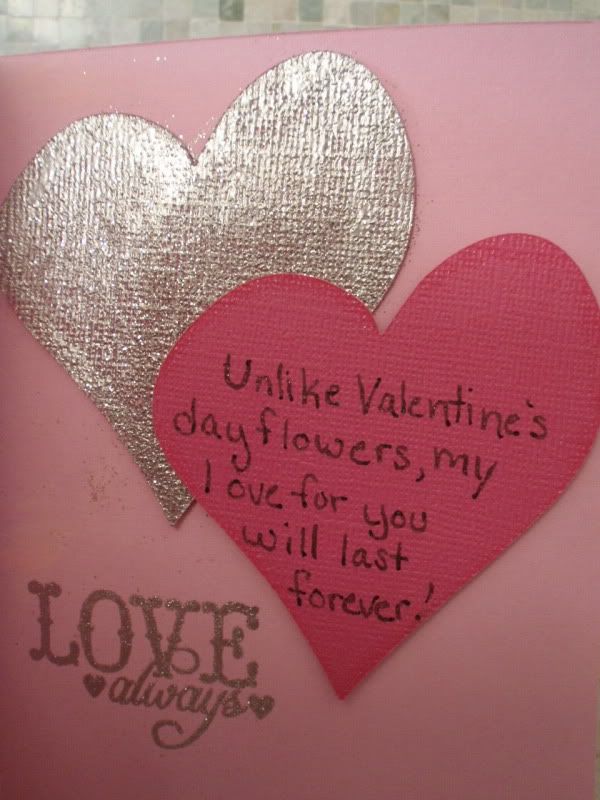 Unlike Valentine's
day flowers, my
love for you
will last
forever!
LOVE
always